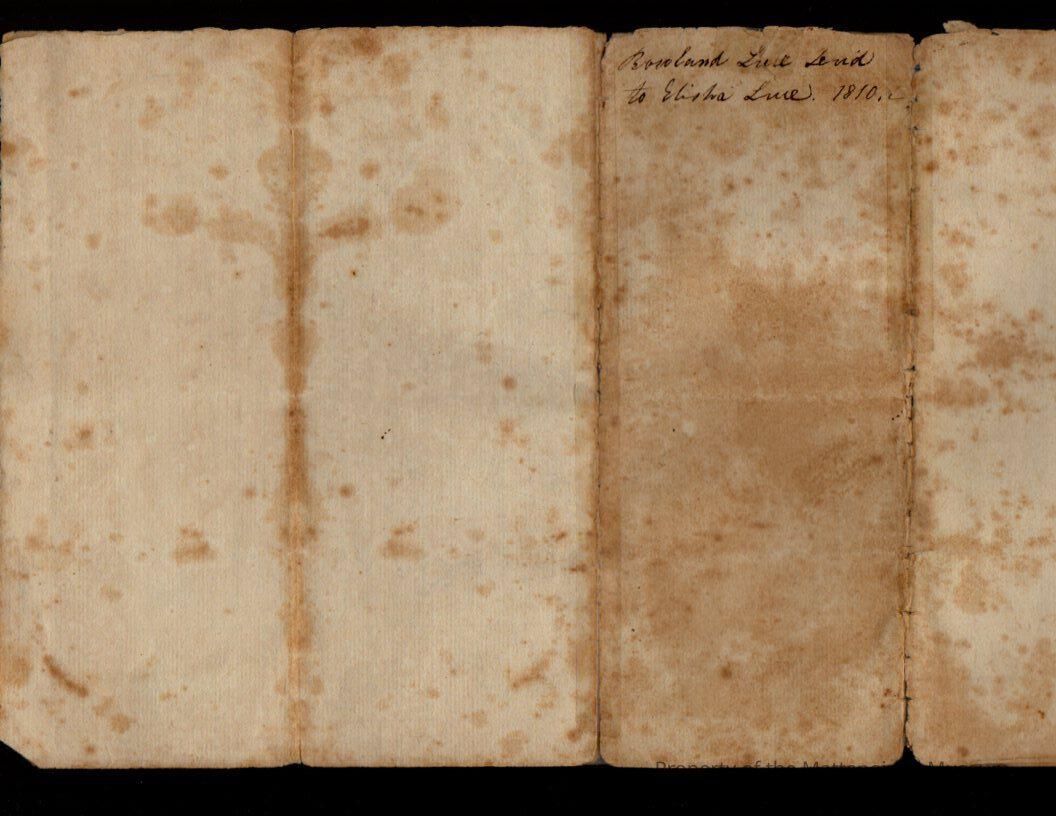 Rowland Luce Deed
to Elisha Luce. 1810.
Property of the Mattapoi Museum